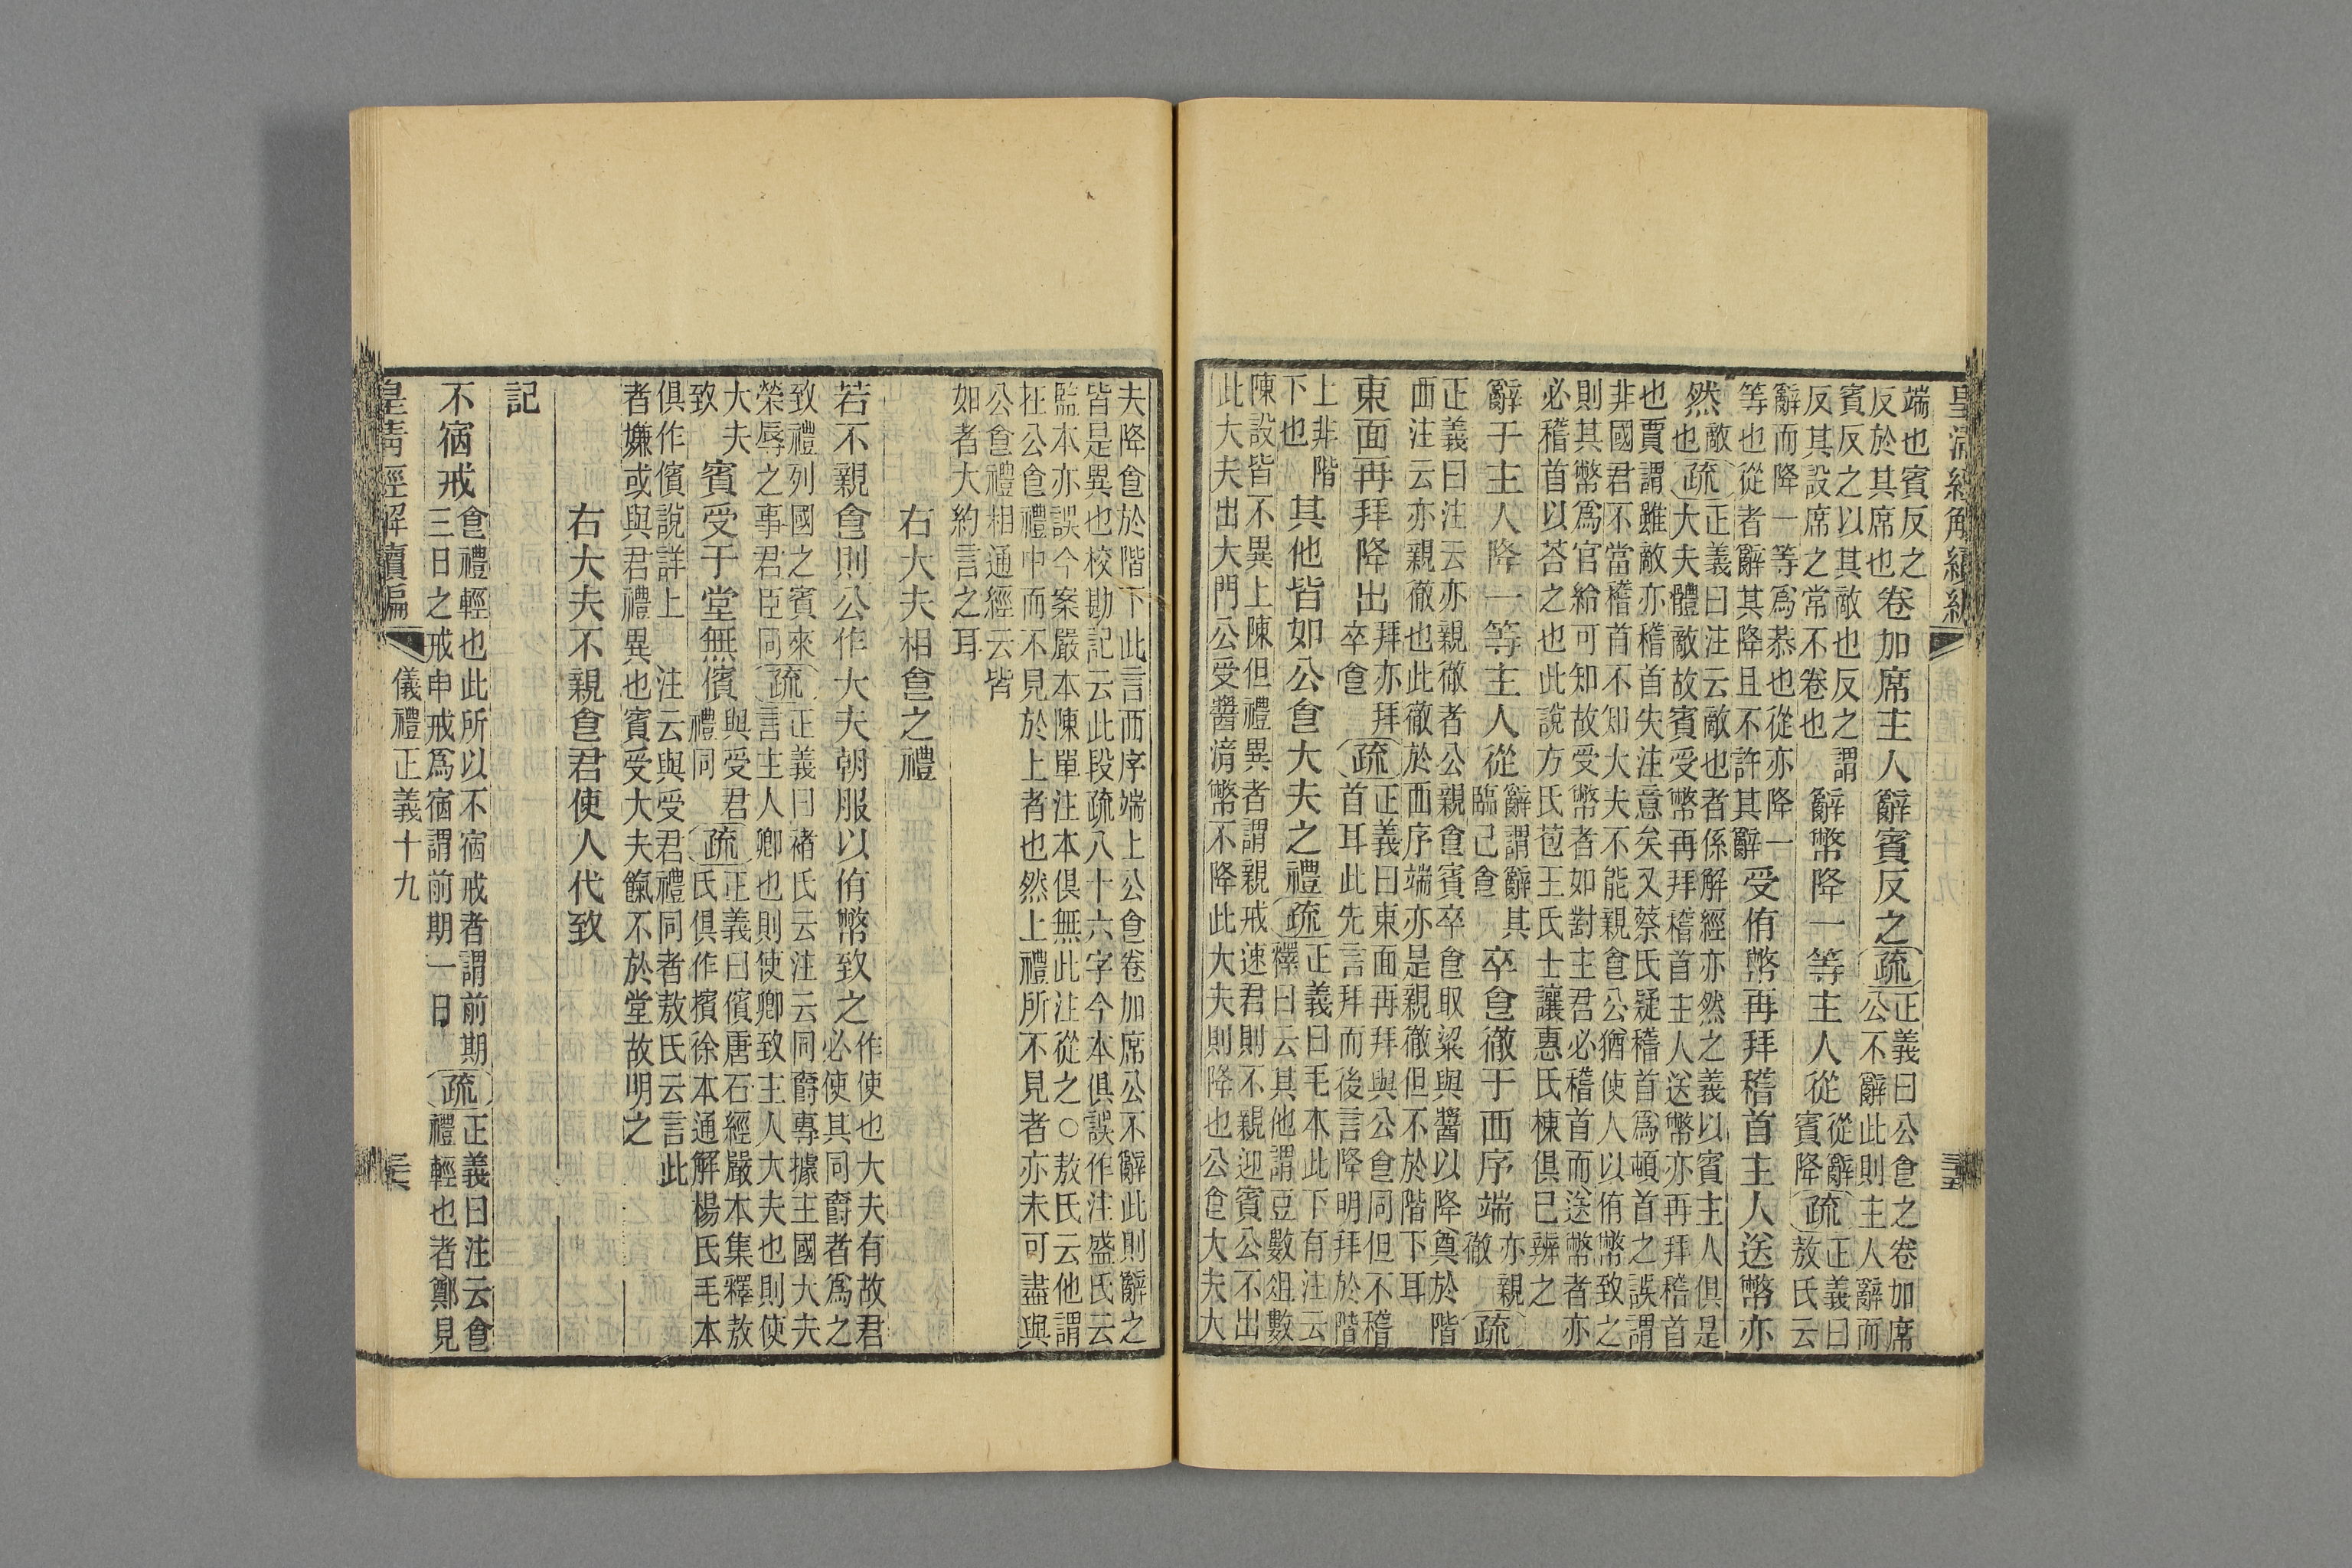 皇清經解續編
端也賓反之
反於其席也
卷加席主人辭賓反之
疏
正義曰公食之卷加席
公不辭此則主人辭而
賓反之以其敵也反之謂
反其設席之常不卷也
辭幣降一等主人從
從辭
賓降
疏
正義曰
敖氏云
辭而降一等爲恭也從亦降一
等也從者辭其降且不許其辭
受侑幣再拜稽首主人送幣亦
然
敵
也
疏
正義曰注云敵也者係解經亦然之義以賓主人俱是
大夫體敵故賓受幣再拜稽首主人送幣亦再拜稽首
也賈謂雖敵亦稽首失注意矣又蔡氏疑稽首爲頓首之誤謂
非國君不當稽首不知大夫不能親食公猶使人以侑幣致之
則其幣爲官給可知故受幣者如對主君必稽首而送幣者亦
必稽首以荅之也此說方氏苞王氏士讓惠氏棟俱已辨之
辭于主人降一等主人從
辭謂辭其
臨己食
卒食徹于西序端
亦親
徹
疏
正義曰注云亦親徹者公親食賓卒食取粱與醬以降奠於階
西注云亦親徹也此徹於西序端亦是親徹但不於階下耳
東面再拜降出
拜亦拜
卒食
疏
正義曰東面再拜與公食同但不稽
首耳此先言拜而後言降明拜於階
上非階
下也
其他皆如公食大夫之禮
疏
正義曰毛本此下有注云
釋曰云其他謂豆數俎數
陳設皆不異上陳但禮異者謂親戒速君則不親迎賓公不出
此大夫出大門公受醬湆幣不降此大夫則降也公食大夫大
夫降食於階下此言西序端上公食卷加席公不辭此則辭之
皆是異也校勘記云此段疏八十六字今本俱誤作注盛氏云
監本亦誤今案嚴本陳單注本俱無此注從之○敖氏云他謂
在公食禮中而不見於上者也然上禮所不見者亦未可盡與
公食禮相通經云皆
如者大約言之耳
右大夫相食之禮
若不親食則公作大夫朝服以侑幣致之
作使也大夫有故君
必使其同爵者爲之
致禮列國之賓來
榮辱之事君臣同
疏
正義曰褚氏云注云同爵專據主國大夫
言主人卿也則使卿致主人大夫也則使
大夫
致
賓受于堂無儐
與受君
禮同
疏
正義曰儐唐石經嚴本集釋敖
氏俱作擯徐本通解楊氏毛本
俱作儐說詳上注云與受君禮同者敖氏云言此
者嫌或與君禮異也賓受大夫餼不於堂故明之
右大夫不親食君使人代致
記
不宿戒
食禮輕也此所以不宿戒者謂前期
三日之戒申戒爲宿謂前期一日
疏
正義曰注云食
禮輕也者鄭見
皇清經解續編
儀禮正義十九